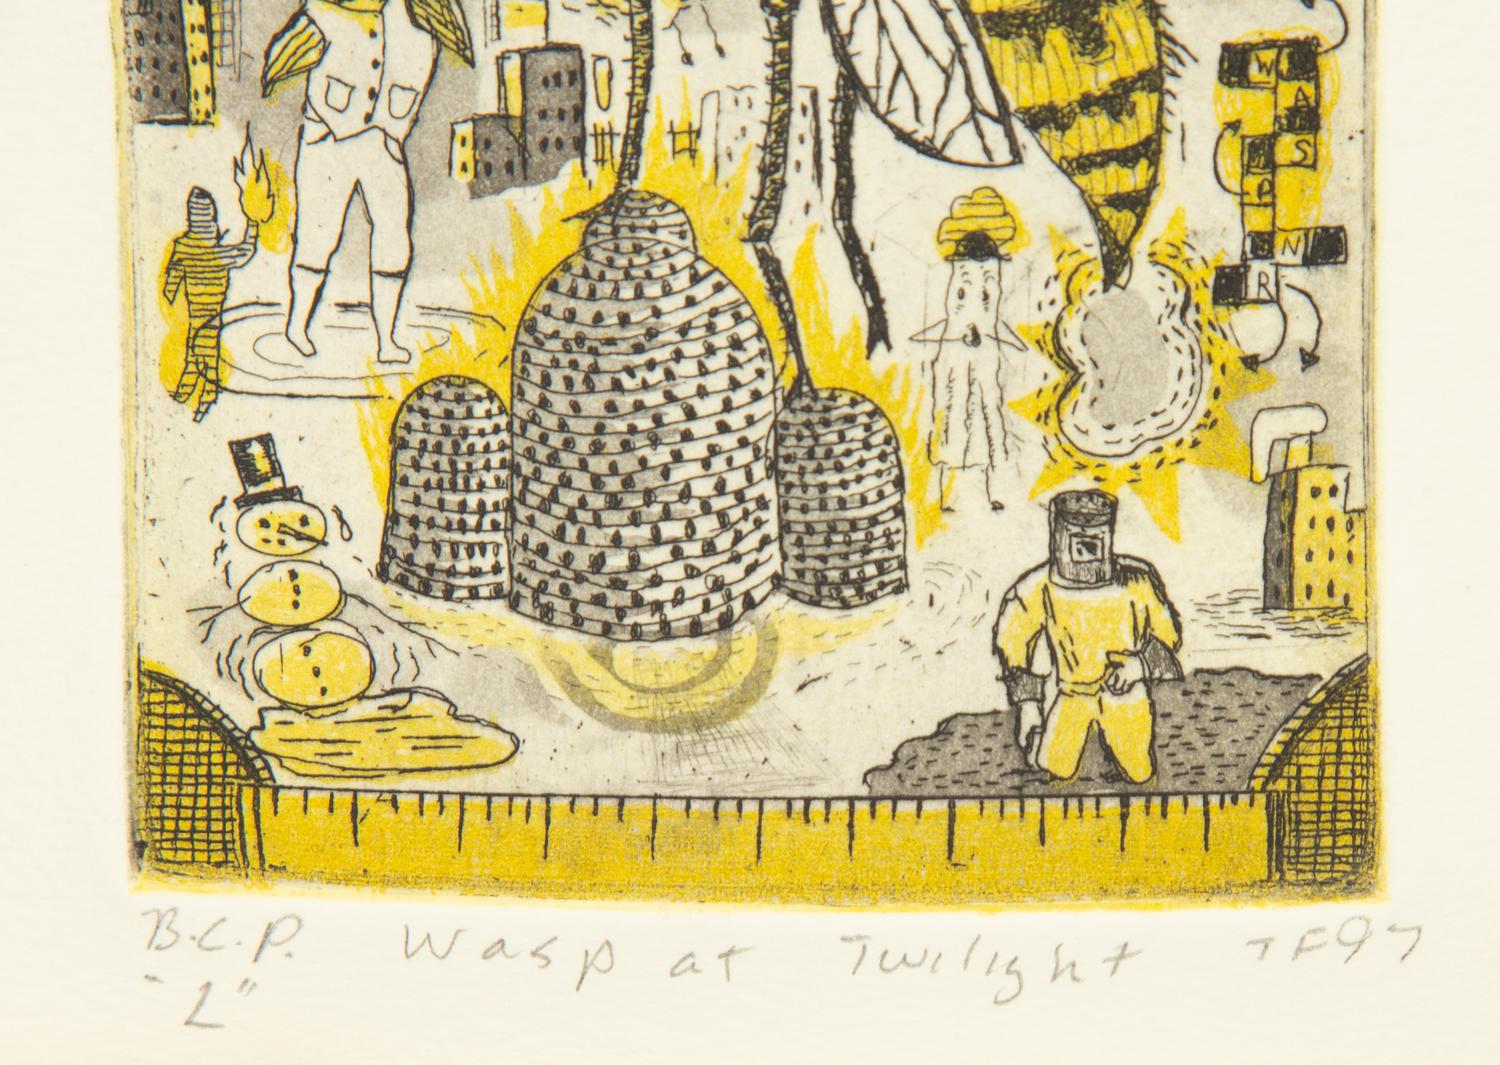 W
A
M S
A
N
R
B.C.P. Wasp at Twilight TF97
"L"